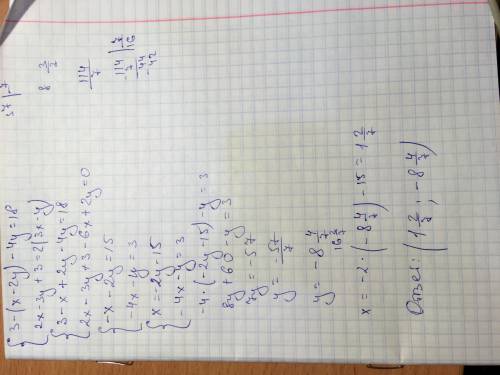 { 3-(x-2y)-4y=18
2x-3y+3=2(3x-y)
{ 3-x+2y-4y=18
2x-3y+3-6x+2y=0
{ -x-2y=15
-4x-y=3
{ x=-2y-15
-4x-y=3
-4·(-2y-15)-y=3
8y+60-y=3
7y=-57
y=-57/7
y=-8 1/7
16 2/7
x=-2·(-8 1/7)-15=1 2/7
Ответ: (1 2/7; -8 1/7)
57 | 7
114/7
114 | 7
16
-7
44
-42